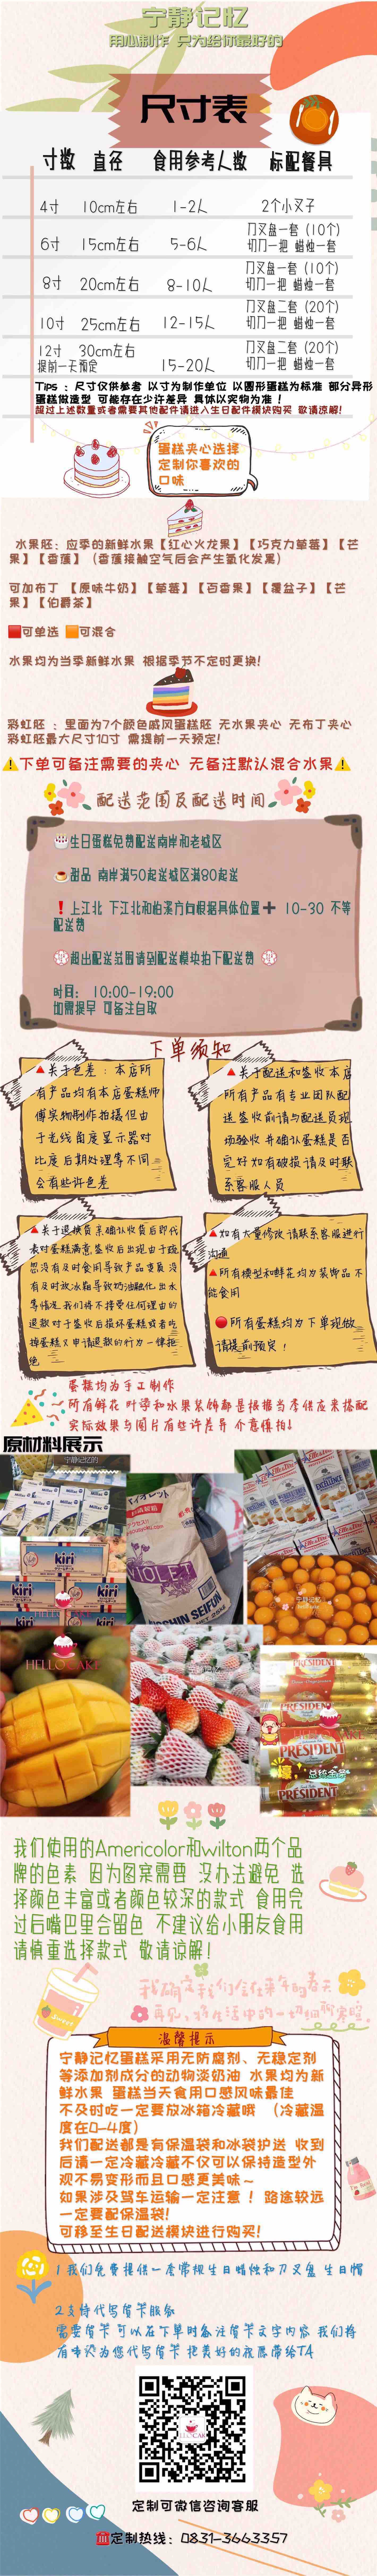 宁静记忆
用心制作 只为给你最好的
尺寸表
寸数 直径 食用参考人数 标配餐具
4寸 10cm左右 1-2人 2个小叉子
6寸 15cm左右 5-6人 刀叉盘一套（10个）
切刀一把 蜡烛一套
8寸 20cm左右 8-10人 刀叉盘一套（10个）
切刀一把 蜡烛一套
10寸 25cm左右 12-15人 刀叉盘二套（20个）
切刀一把 蜡烛一套
12寸 30cm左右 15-20人 刀叉盘二套（20个）
提前一天预定 切刀一把 蜡烛一套
Tips ：尺寸仅供参考 以寸为制作单位 以圆形蛋糕为标准 部分异形
蛋糕做造型 可能存在少许差异 具体以实物为准！
超过上述数量或者需要其他配件请进入生日配件模块购买 敬请谅解！
蛋糕夹心选择
定制你喜欢的
口味
水果胚：应季的新鲜水果【红心火龙果】【巧克力草莓】【芒
果】【香蕉】（香蕉接触空气后会产生氧化发黑）
可加布丁 【原味牛奶】【草莓】【百香果】【覆盆子】【芒
果】【伯爵茶】
🟥可单选 🟧可混合
水果均为当季新鲜水果 根据季节不定时更换！
彩虹胚 ：里面为7个颜色戚风蛋糕胚 无水果夹心 无布丁夹心
彩虹胚最大尺寸10寸 需提前一天预定！
⚠下单可备注需要的夹心 无备注默认混合水果⚠
配送范围及配送时间
生日蛋糕免费配送南岸和老城区
甜品 南岸满50起送城区满80起送
❗上江北 下江北和柏溪方向根据具体位置➕ 10-30 不等
配送费
超出配送范围请到配送模块拍下配送费
时间： 10:00-19:00
如需提早 可备注自取
下单须知
🔺关于色差：本店所
有产品均有本店蛋糕师
傅实物制作拍摄但由
于光线角度显示器对
比度后期处理等不同
会有些许色差
🔺关于配送和签收本店
所有产品有专业团队配
送签收前请与配送员现
场验收并确认蛋糕是否
完好如有破损请及时联
系客服人员
🔺关于退换货亲确认收货后即代
表对蛋糕满意签收后出现由于疏
忽没有及时食用导致产品变质没
有及时放冰箱导致奶油融化出水
等情况我们将不接受任何理由的
退款对于签收后损坏蛋糕或者吃
掉蛋糕又申请退款的行为一律拒
绝
🔺如有大量修改请联系客服进行
沟通
🔺所有模型和鲜花均为装饰品不
能食用
🔴所有蛋糕均为下单现做
请提前预定！
蛋糕均为手工制作
所有鲜花 叶子和水果装饰都是根据当季供应来搭配
实际效果与图片有些许差异 介意慎拍！
原材料展示
宁静记忆的
Millac
kiri
kiri
kiri
HELLO CAKE
VIOLET
NISSHIN SEIFUN
宁静记忆
HELLO CAKE
PRESIDENT
PRESIDENT
PRESIDENT
PRESIDENT
壕
总统金砖
我们使用的Americolor和wilton两个品
牌的色素 因为图案需要 没办法避免 选
择颜色丰富或者颜色较深的款式 食用完
过后嘴巴里会留色 不建议给小朋友食用
请慎重选择款式 敬请谅解！
Sweet
我确定我们会在来年的春天
再见
温馨提示
宁静记忆蛋糕采用无防腐剂、无稳定剂
等添加剂成分的动物淡奶油 水果均为新
鲜水果 蛋糕当天食用口感风味最佳
不及时吃一定要放冰箱冷藏哦 （冷藏温
度在0-4度）
我们配送都是有保温袋和冰袋护送 收到
后请一定冷藏冷藏不仅可以保持造型外
观不易变形而且口感更美味～
如果涉及驾车运输一定注意！路途较远
一定要配保温袋！
可移至生日配送模块进行购买！
1 我们免费提供一套常规生日蜡烛和刀叉盘 生日帽
2支持代写贺卡服务
需要贺卡可以在下单时备注贺卡文字内容 我们将
用心为您代写贺卡把美好的祝愿带给TA
定制可微信咨询客服
☎定制热线：0831-3663357